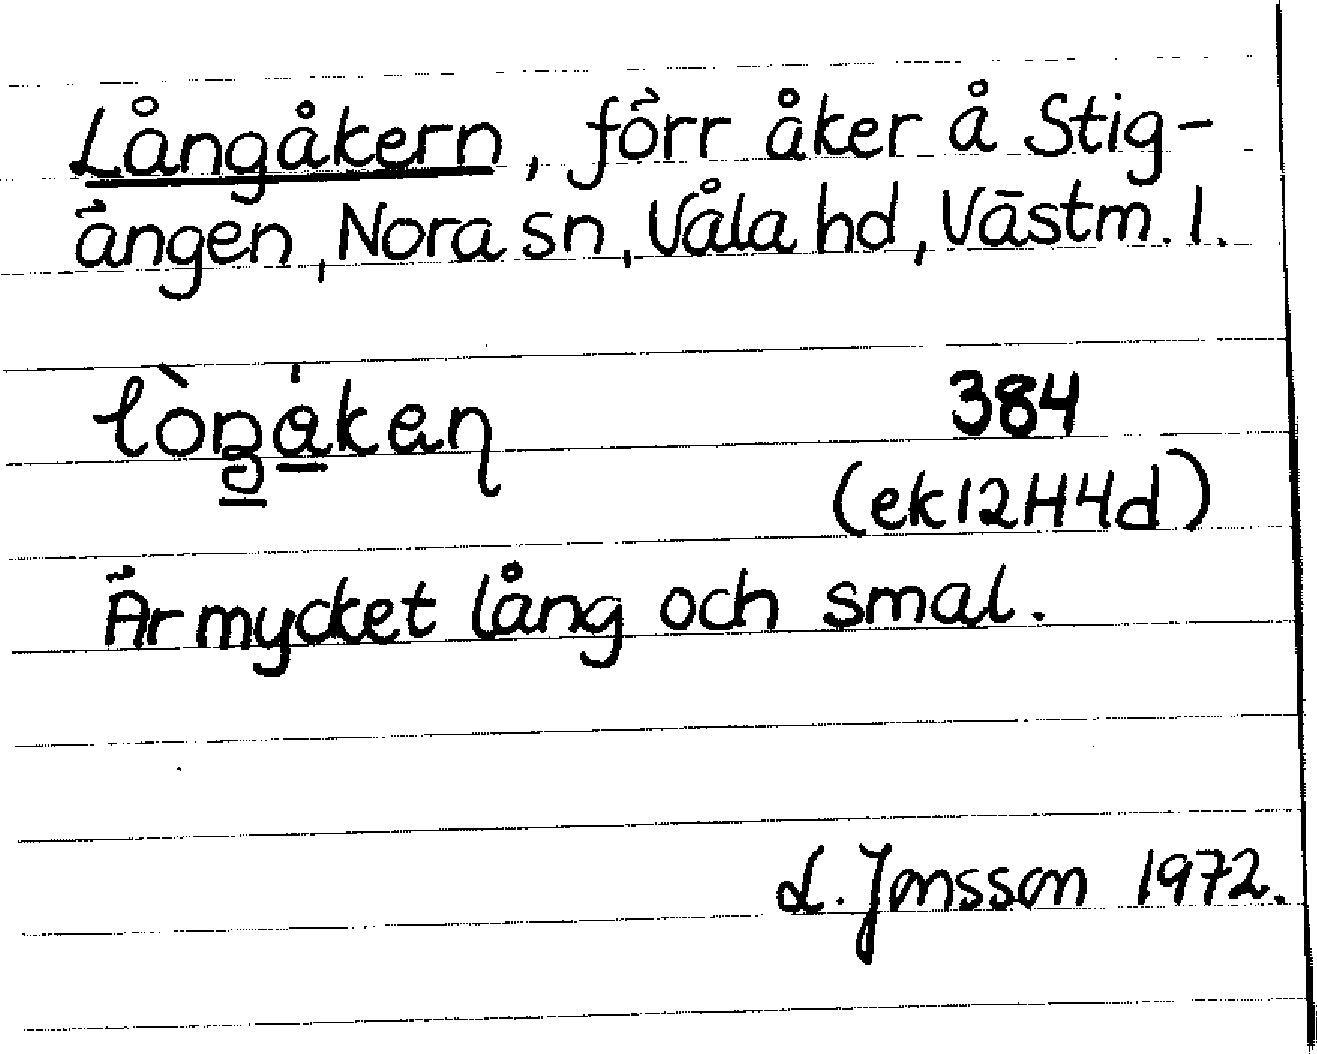 Långåkern, förr åker å Stig-
ängen, Nora sn, Våla hd, Västm. l.
384
(ek12H4d)
Är mycket lång och smal.
L. Jonsson 1972.